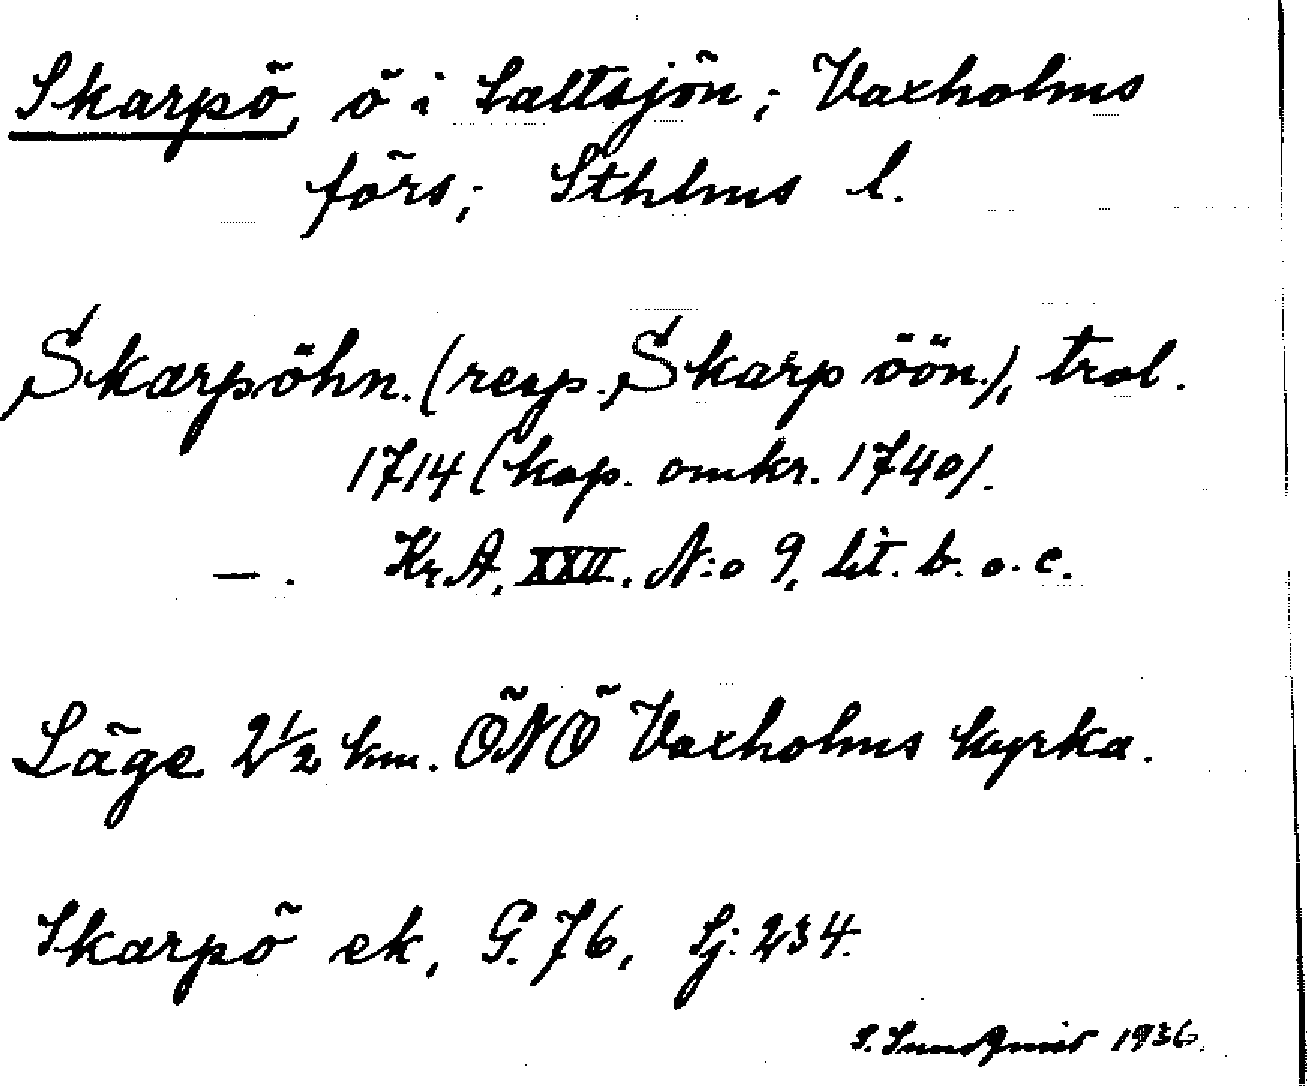 Skarpö, ö i Saltsjön; Vaxholms
förs; Sthlms l.
Skarpöhn. (resp. Skarp öön.), trol.
1714 (kop. omkr. 1740).
—. Kr.A. XXII. N:o 9, lit. b. o. c.
Läge 2 1/2 km. ÖNÖ Vaxholms kyrka.
Skarpö ek, G. 76, Sj: 234.
S. Sundqvist 1936.